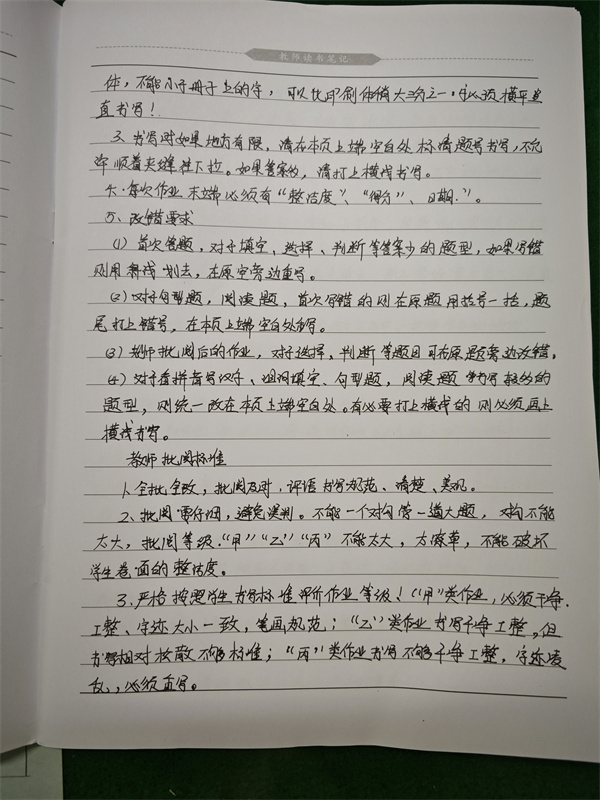 教师读书笔记
体，不能小于册子上的字，可以比印刷体稍大三分之一。字必须横平竖
直书写！
3、书写时如果地方有限，请在本页上端空白处标清题号书写，不允
许顺着夹缝往下拉。如果答案多，请打上横线书写。
4、每次作业末端必须有“整洁度”、“得分”、日期.”。
5、改错要求
(1) 首次答题，对于填空、选择、判断等答案少的题型，如果写错
则用斜线划去，在原空旁边重写。
(2) 对于句型题，阅读题，首次写错的则在原题用括号一括，题
尾打上错号，在本页上端空白处书写。
(3) 老师批阅后的作业，对于选择，判断等题目可在原题旁边改错。
(4) 对于看拼音写汉字、组词填空、句型题，阅读题书写较多的
题型，则统一改在本页上端空白处。有必要打上横线的则必须画上
横线书写。
教师批阅标准
1、全批全改，批阅及时，评语书写规范、清楚、美观。
2、批阅需仔细，避免误判。不能一个对勾管一道大题，对勾不能
太大，批阅等级.“甲”“乙”“丙”不能太大，太潦草，不能破坏
学生卷面的整洁度。
3、严格按照学生书写标准评价作业等级！“甲”类作业，必须干净.
工整、字迹大小一致，笔画规范；“乙”类作业书写干净工整，但
书写相对松散不够标准；“丙”类作业书写不够干净工整，字迹凌
乱，必须重写。